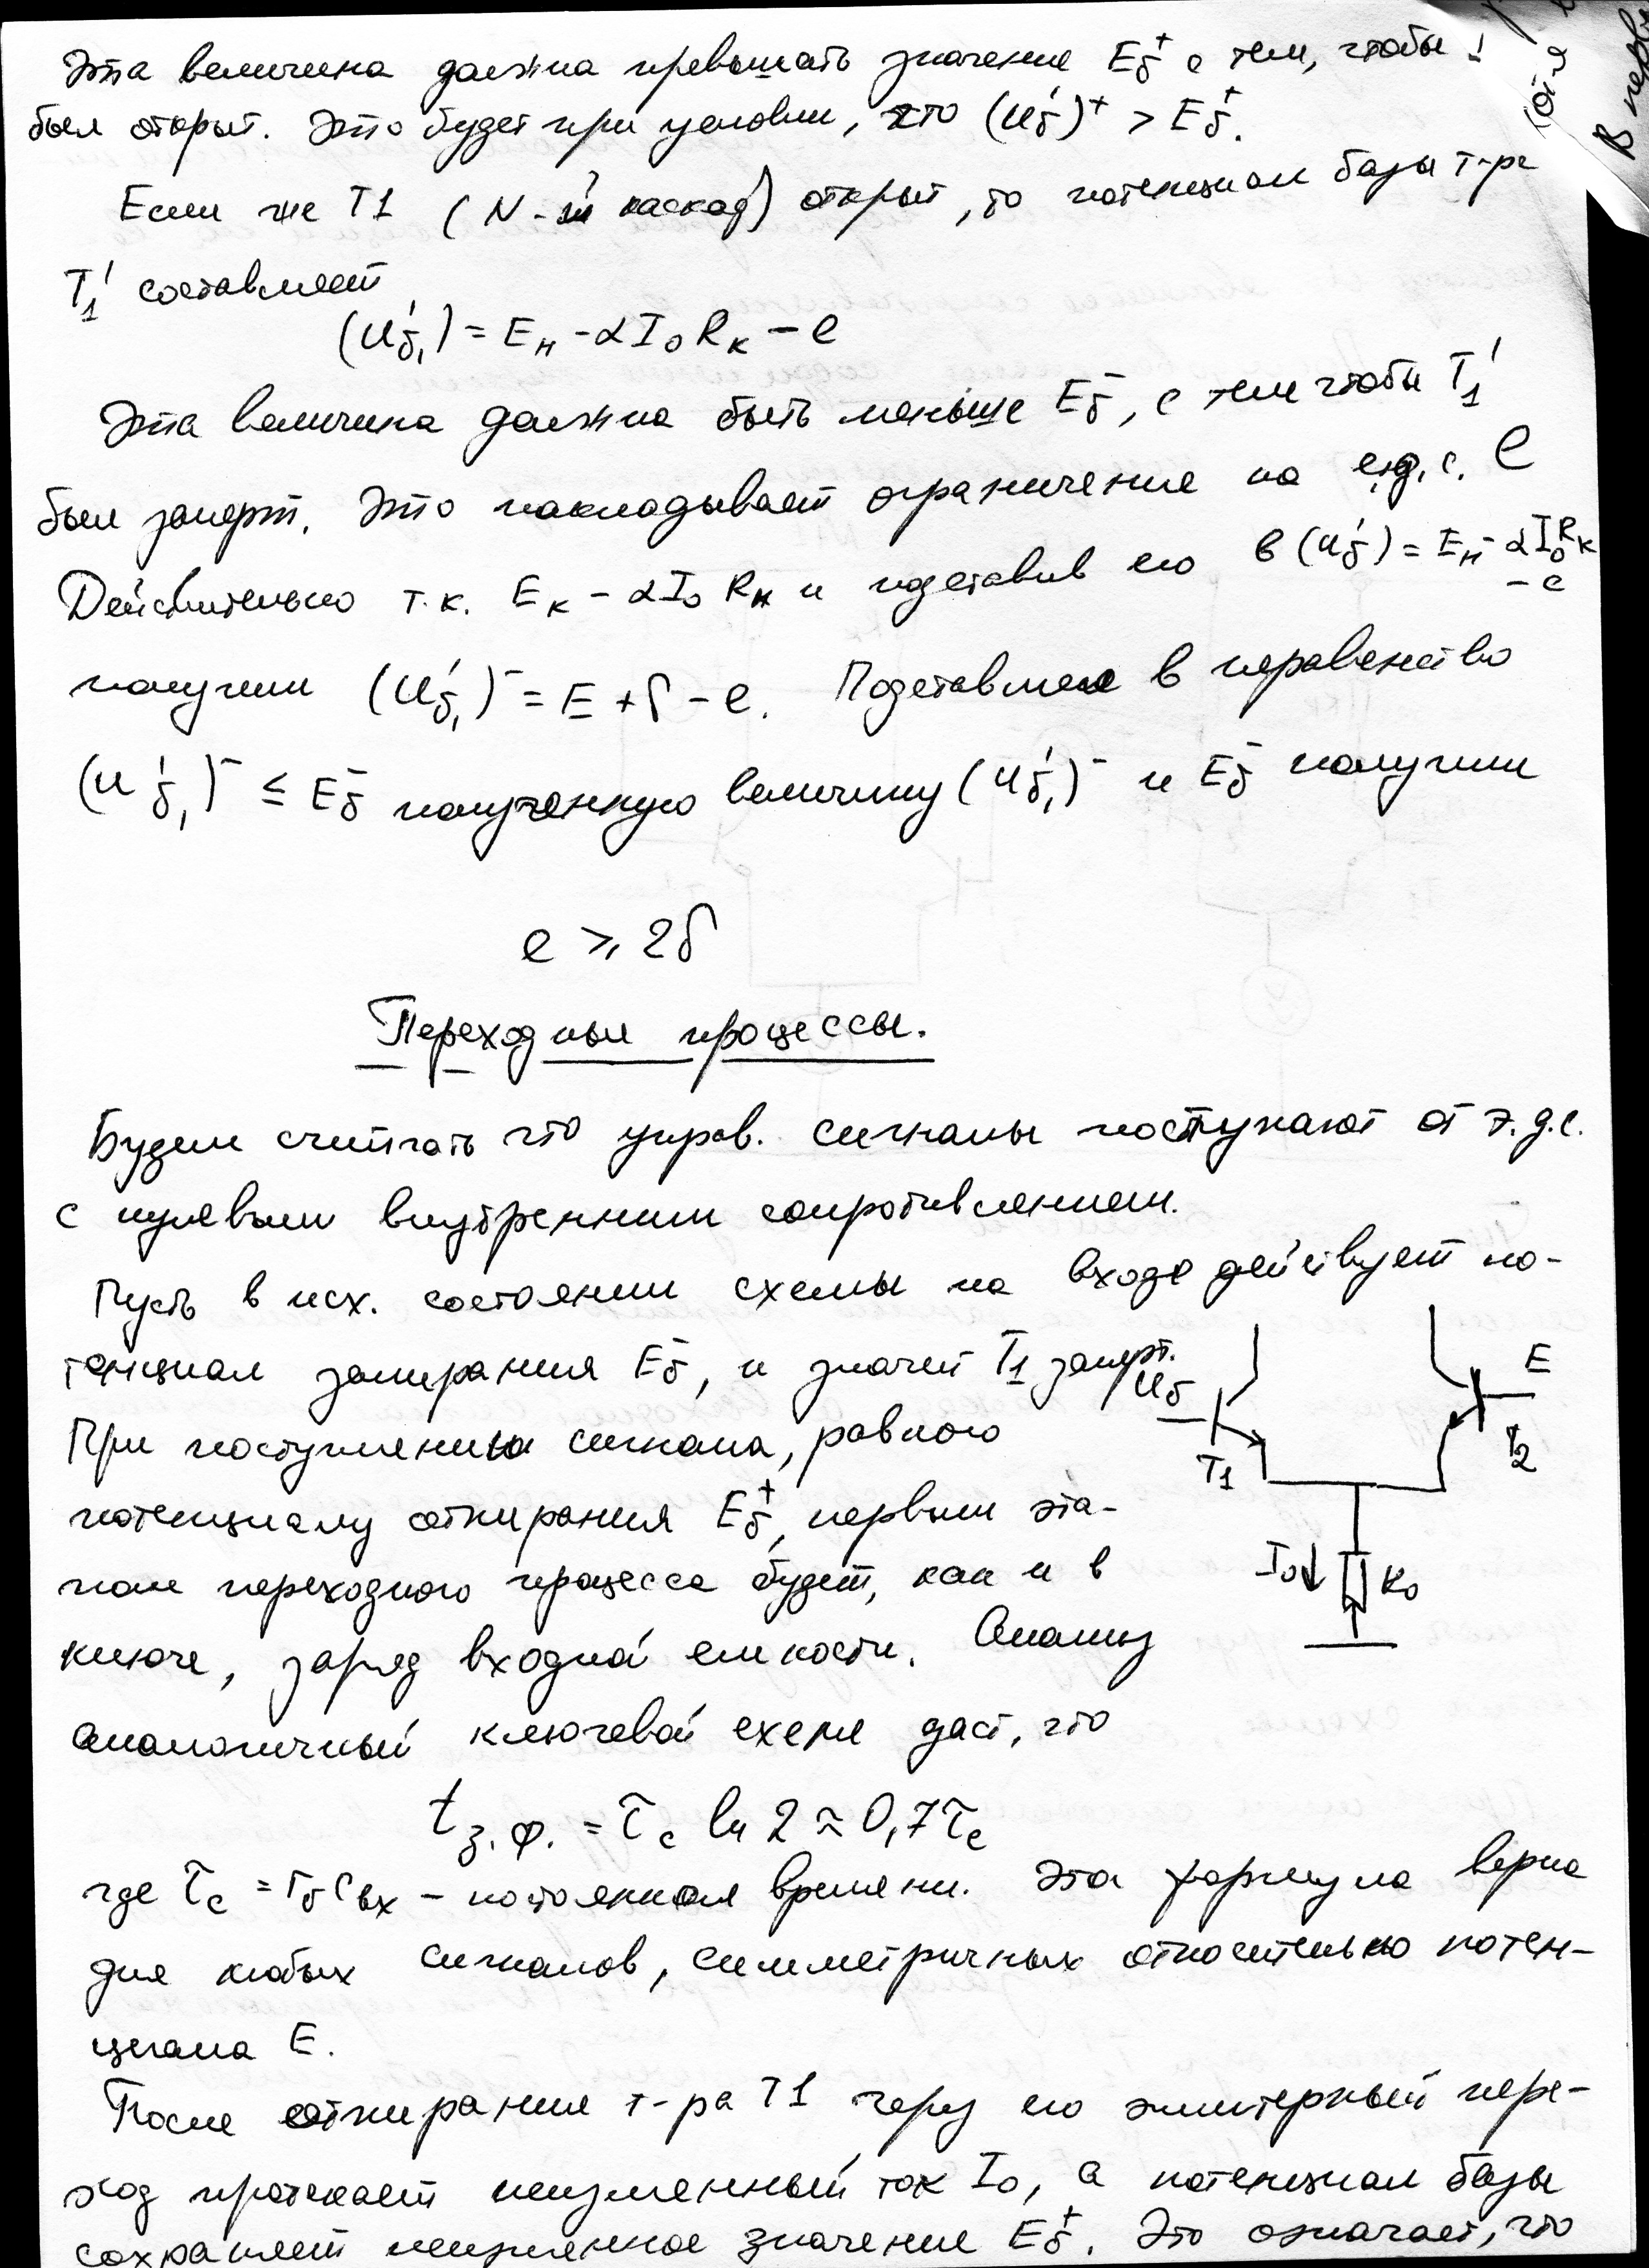 Эта величина должна превышать значение Eб⁺ с тем, чтобы
был открыт. Это будет при условии, что (Uб')⁺ > Eб⁺.
Если же T1 (N-й каскад) открыт, то потенциал базы т-ра
T1' составляет
(Uб1') = Eн - αI0Rк - e
Эта величина должна быть меньше Eб⁻, с тем чтобы T1'
был заперт. Это накладывает ограничение на э.д.с. e
Действительно т.к. Eк - αI0Rк и подставив его в (Uб') = Eн - αI0Rк
- e
получим (Uб1')⁻ = E + δ - e. Подставляя в неравенство
(Uб1')⁻ ≤ Eб⁻ полученную величину (Uб1')⁻ и Eб⁻ получим
e ⩾ 2δ
Переходные процессы.
Будем считать что управ. сигналы поступают от э.д.с.
с нулевым внутренним сопротивлением.
Пусть в исх. состоянии схемы на входе действует по-
тенциал запирания Eб⁻, и значит T1 заперт.
При поступлении сигнала, равного
потенциалу отпирания Eб⁺, первым эта-
пом переходного процесса будет, как и в
ключе, заряд входной емкости. Анализ
аналогичный ключевой схеме даст, что
Uб
E
T1
T2
I0
R0
tз.ф. = τc ln 2 ≈ 0,7τc
где τc = rбCвх - постоянная времени. Эта формула верна
для любых сигналов, симметричных относительно потен-
циала E.
После отпирания т-ра T1 через его эмиттерный пере-
ход протекает неизменный ток I0, а потенциал базы
сохраняет неизменное значение Eб⁺. Это означает, что
В